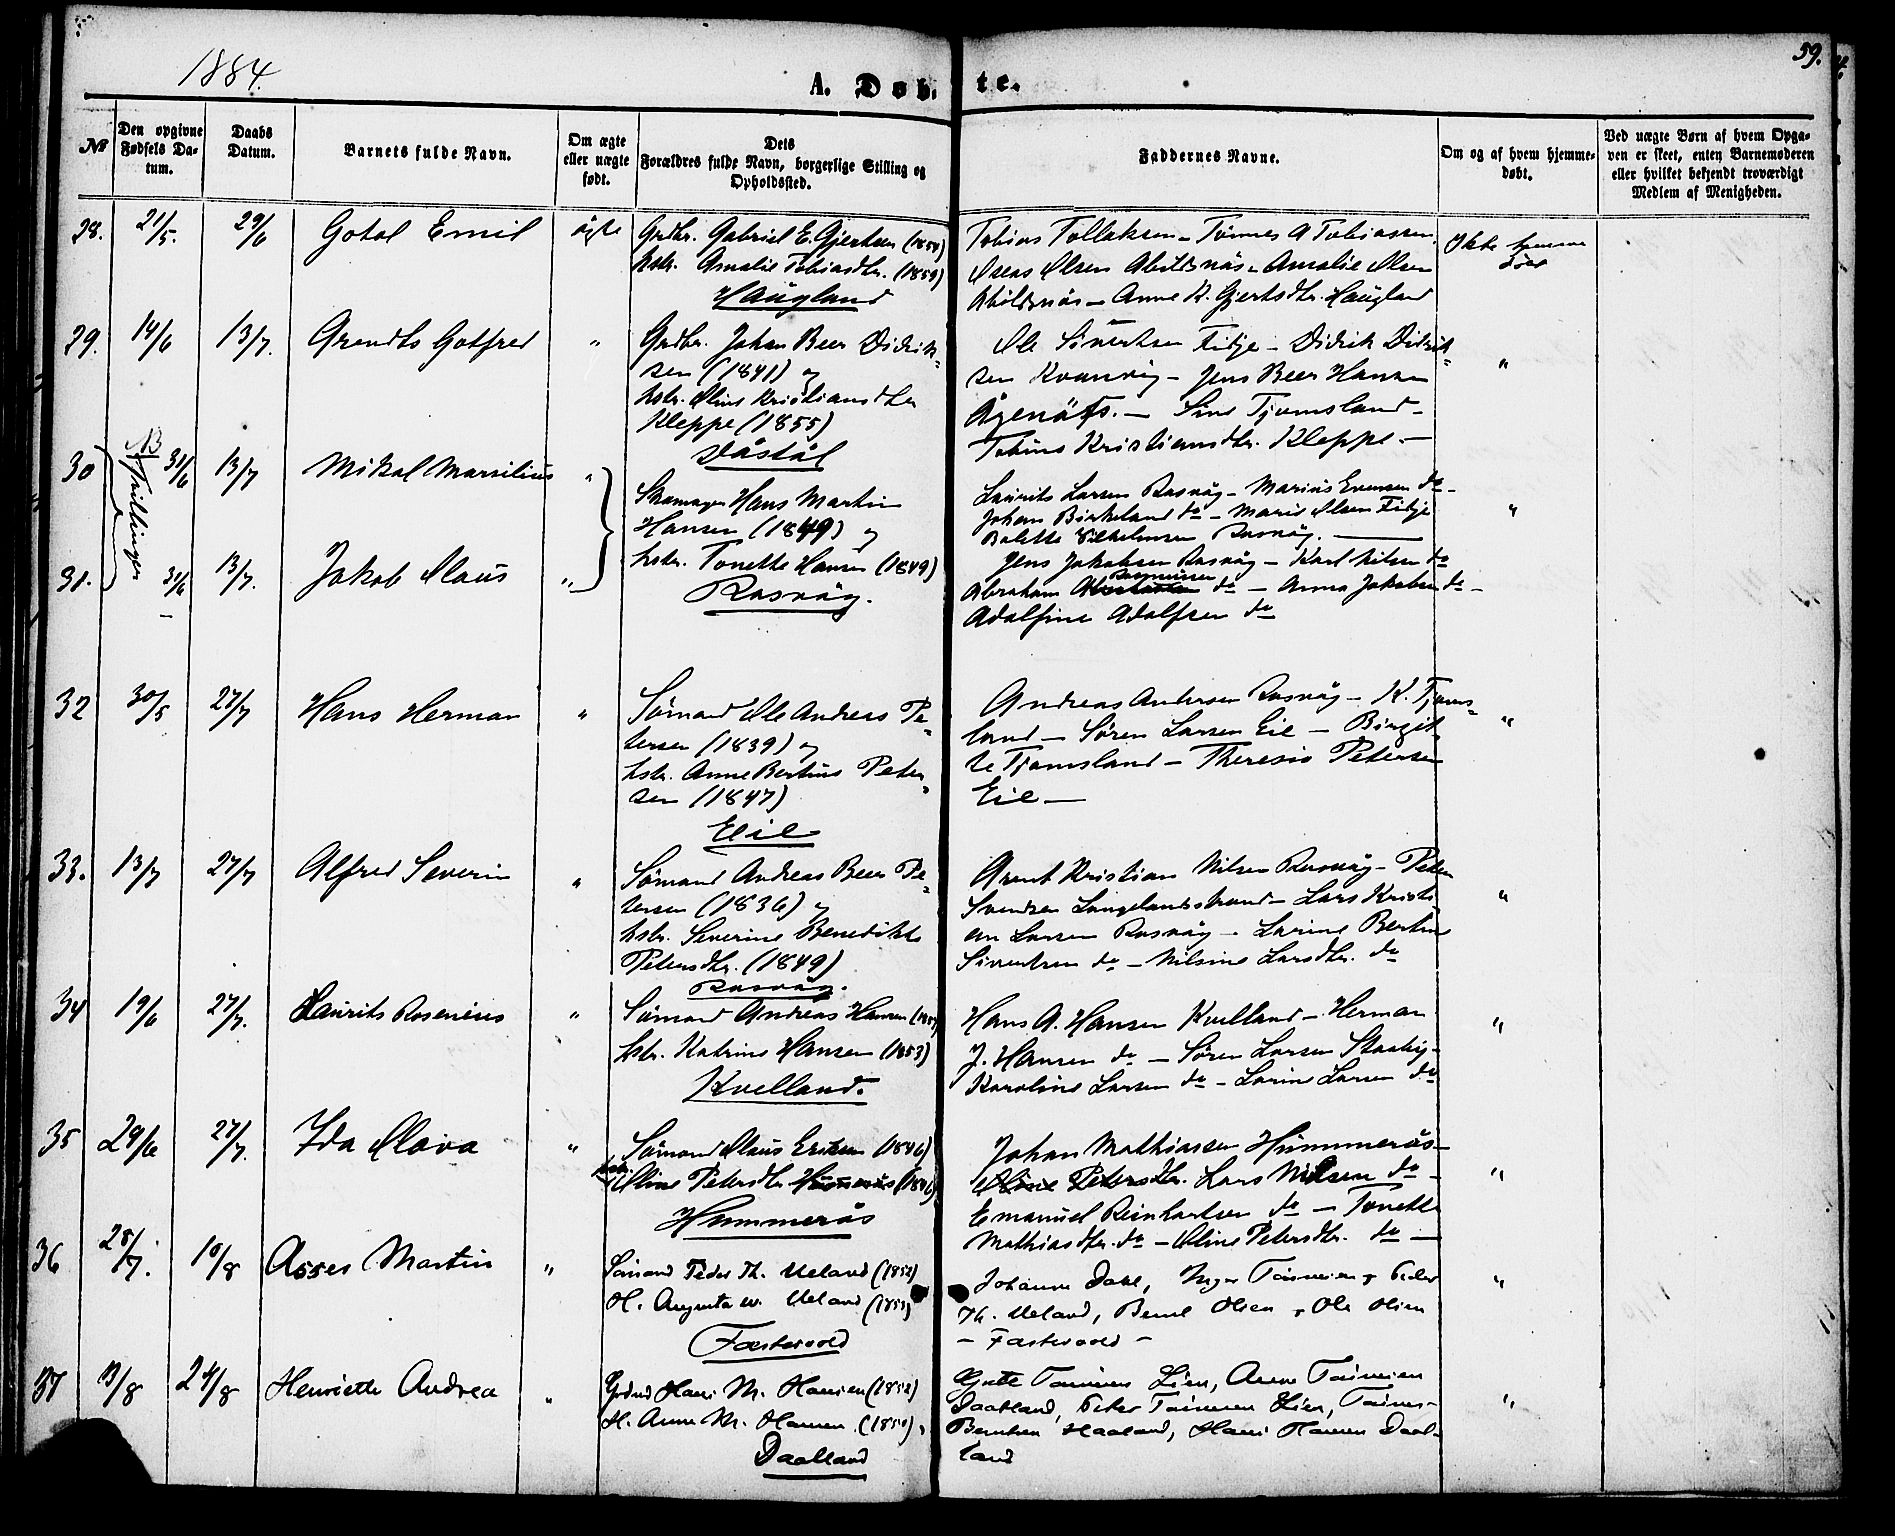 1884.
A. Døb-
te.
59.
№
Den opgivne Fødsels Da-tum.
Daabs Datum.
Barnets fulde Navn.
Om ægte eller uægte født.
Dets Forældres fulde Navn, borgerlige Stilling og Opholdssted.
Faddernes Navne.
Om og af hvem hjemme-døbt.
Ved uægte Børn af hvem Opga-ven er skeet, enten Barnemoderen eller hvilket bekjendt troværdigt Medlem af Menigheden.
28. 21/5. 29/6 Gotal Emil ägte Grdbr. Gabriel E. Gjertsen
hstr. Amalie Tobiasdtr. (1859)
Haugland
Tobias Tollaksen - Tönnes A Tobiassen.
Oseas Olsen Abildsnäs - Amalie Olsen
Abildsnäs - Anne K. Gjertsdtr. Haugland
Ikke hjemme
döbt
29. 14/6 13/7. Arendts Gotfred " Grdbr. Johan Beer Didrik-
sen (1841) og
hstr. Oline Kristiansdtr
Kleppe (1855)
Dåstöl
Ole Sivertsen Fitje - Didrik Didrik-
sen Kvanvig - Jens Beer Hansen
Ågenäs. - Sine Tjomsland -
Tobine Kristiansdtr. Kleppe. -
"
30 NB Trillinger 31/6 13/7 Mikal Marsilius "
Skomager Hans Martin
Hansen (1849) og
hstr. Tonette Hansen (1849)
Rasvåg.
Laurits Larsen Rasvåg - Marius Evensen do -
Johan Birkeland do - Marie Olsen Fitje
Bolette Vilhelmsen Rasvåg.
"
31. 31/6 13/7. Jakob Olaus "
Jens Jakobsen Rasvåg - Karl Nilsen do
Abraham Rasmussen do - Anna Jakobsen do -
Adolfine Adolfsen do
32 30/5 27/7 Hans Herman " Sömand Ole Andreas Pe-
tersen (1839) og
hstr. Anne Bertine Peter-
sen (1847)
Eie
Andreas Andersen Rasvåg - K. Tjoms-
land - Sören Larsen Eie - Birgit-
te Tjomsland - Theresie Petersen
Eie -
"
33. 13/7 27/7 Alfred Severin " Sömand Andreas Beer Pe-
tersen (1836) og
hstr. Severine Benedikte
Petersdtr. (1849)
Rasvåg.
Arent Kristian Nilsen Rasvåg - Peter
Svendsen Langelandsstrand - Lars Kristi-
an Larsen Rasvåg - Larine Bertine
Sivertsen do - Nilsine Larsdtr. do
"
34 19/6 27/7. Laurits Rosenius " Sömand Andreas Hansen
hstr. Katrine Hansen (1853)
Kvelland.
Hans A. Hansen Kvelland - Herman
J. Hansen do - Sören Larsen
Karoline Larsen do - Larine Larsen do
"
35 29/6 27/7. Ida Olava " Sömand Olaus Eriksen (1846)
hstr. Oline Petersdtr Hummeräs
Hummerås
Johan Mathiassen Hummerås -
Oline Petersdtr. Lars Nilsen do -
Emanuel Reinhartsen do - Tonette
Mathiasdtr. do - Oline Petersdtr. do -
"
36 28/7. 10/8 Asser Martin " Sömand Peder Th. Ueland (1852)
H. Augusta Ueland
Fastevold
Johanne Dahl, Inger Tönnesen, Peder
Th. Ueland, Bernt Olsen, Ole Olsen
- Fastevold -
"
37 13/8 24/8 Henriette Andrea " Hans M. Hansen (1852)
H. Anne M. Hansen
Daatland
Tönnesen Lien, Anne Tönnesen
Daatland, Peter Tönnesen Lien, Tönnes
Berntsen Haaland, Hans Hansen Daat-
land
"